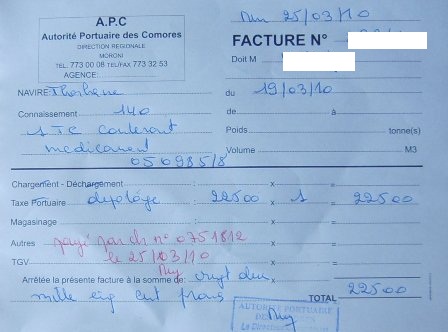 A.P.C
Autorité Portuaire des Comores
DIRECTION REGIONALE
MORONI
TEL: 773 00 08 TEL/FAX 773 32 53
AGENCE:
25/03/10
FACTURE N°
Doit M
NAVIRE:
du 19/03/10
Connaissement 140
de à
1 TC contenant
Poids tonne(s)
medicament
Volume M3
050985/8
Chargement - Déchargement : x =
Taxe Portuaire depotage 22500 x 1 = 22500
Magasinage x =
Autres payé par ch n° 0751812 x =
TGV le 25/03/10 x =
Arrêtée la présente facture à la somme de: vingt deux
mille cinq cent francs TOTAL 22500
AUTORITE PORTUAIRE